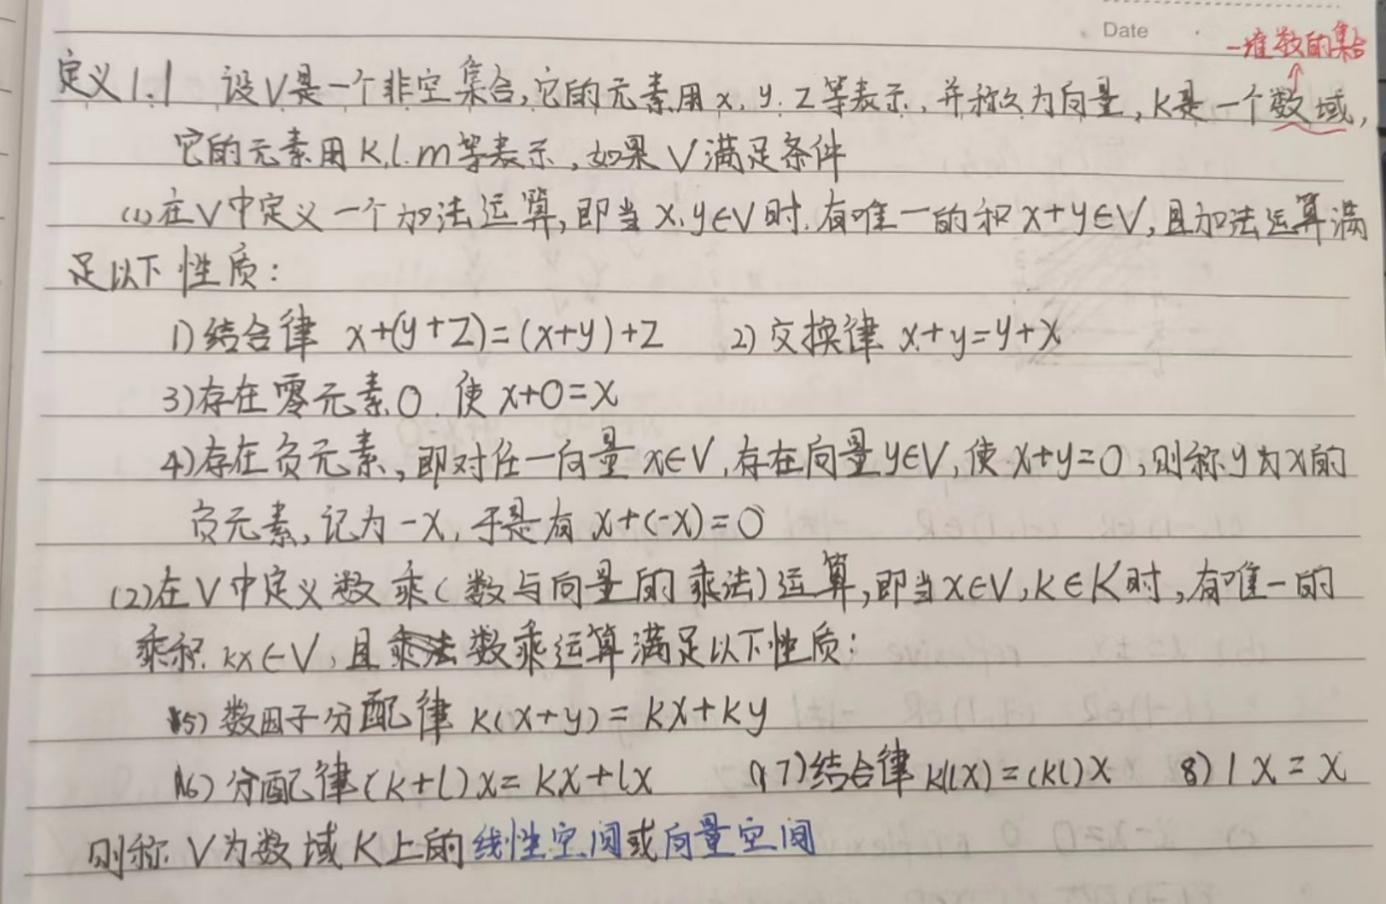 Date
一堆数的集合
定义1.1 设V是一个非空集合,它的元素用x,y,z等表示,并称之为向量,K是一个数域,
它的元素用k,l,m等表示,如果V满足条件
(1)在V中定义一个加法运算,即当x,y∈V时,有唯一的和x+y∈V,且加法运算满
足以下性质:
1)结合律 x+(y+z)=(x+y)+z 2)交换律 x+y=y+x
3)存在零元素0,使x+0=x
4)存在负元素,即对任一向量x∈V,存在向量y∈V,使x+y=0,则称y为x的
负元素,记为-x,于是有x+(-x)=0
(2)在V中定义数乘(数与向量的乘法)运算,即当x∈V,k∈K时,有唯一的
乘积kx∈V,且数乘运算满足以下性质:
5)数因子分配律 k(x+y)=kx+ky
6)分配律(k+l)x=kx+lx 7)结合律k(lx)=(kl)x 8)1x=x
则称V为数域K上的线性空间或向量空间